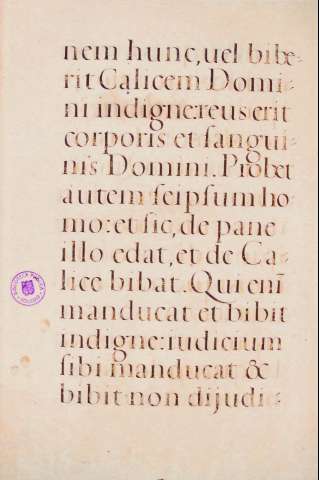 nem hunc, uel bibe-
rit Calicem Domi-
ni indigne: reus erit
corporis et sangui-
nis Domini. Probet
autem seipsum ho
mo: et sic, de pane
illo edat, et de Ca-
lice bibat. Qui enī
manducat et bibit
indigne: iudicium
sibi manducat &
bibit non dijudi-